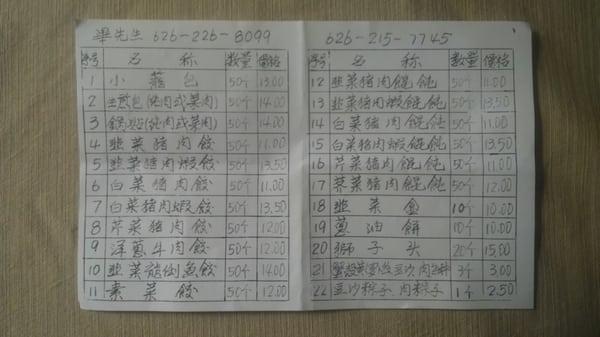 畢先生 626-226-8099
序号 名 称 数量 價格
1 小 籠 包 50个 13.00
2 生煎包(纯肉或菜肉) 50个 14.00
3 鍋貼(纯肉或菜肉) 50个 14.00
4 韭菜猪肉餃 50个 11.00
5 韭菜猪肉蝦餃 50个 13.50
6 白菜猪肉餃 50个 11.00
7 白菜猪肉蝦餃 50个 13.50
8 芹菜猪肉餃 50个 12.00
9 洋蔥牛肉餃 50个 12.00
10 韭菜龍利魚餃 50个 14.00
11 素 菜 餃 50个 12.00
626-215-7745
序号 名 称 数量 價格
12 韭菜猪肉餛飩 50个 11.00
13 韭菜猪肉蝦餛飩 50个 13.50
14 白菜猪肉餛飩 50个 11.00
15 白菜猪肉蝦餛飩 50个 13.50
16 芹菜猪肉餛飩 50个 11.00
17 荠菜猪肉餛飩 50个 12.00
18 韭 菜 盒 10个 10.00
19 蔥 油 餅 10个 10.00
20 獅 子 头 20个 15.00
21 蟹殼黄 豆沙 肉 3个 3.00
22 豆沙粽子、肉粽子 1个 2.50